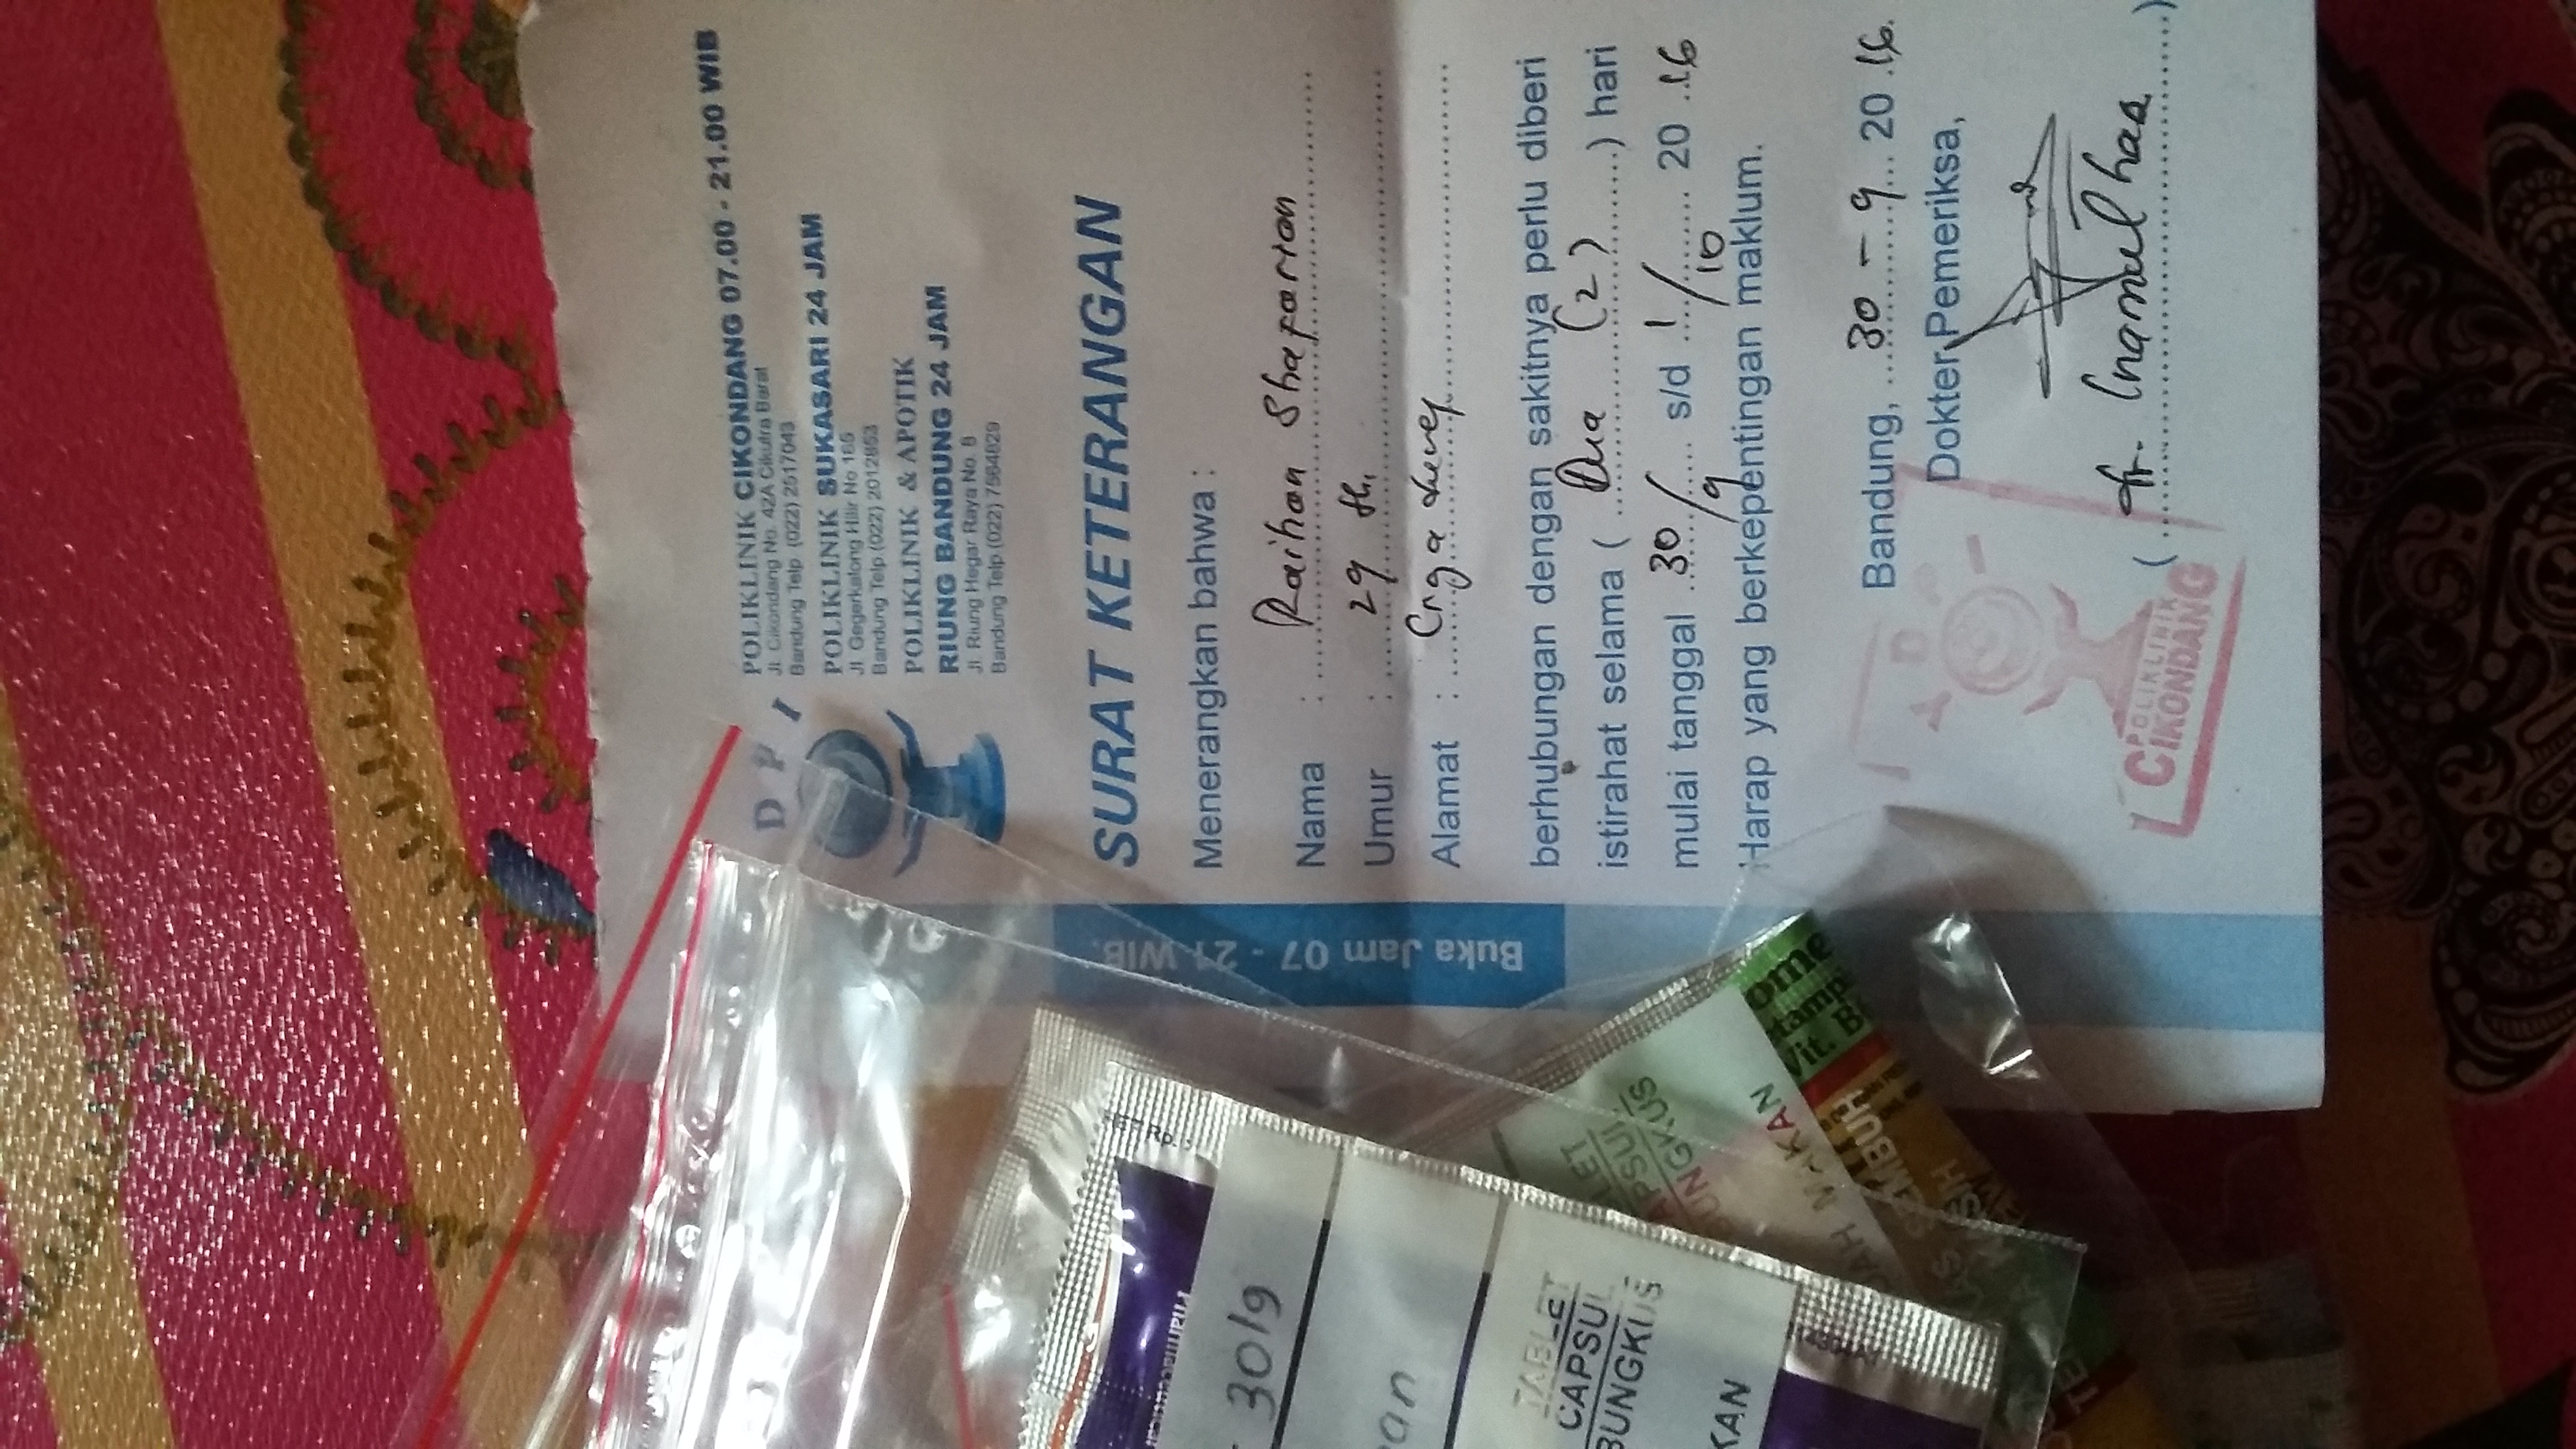 D P I
POLIKLINIK CIKONDANG 07.00 - 21.00 WIB
Jl. Cikondang No. 42A Cikutra Barat
Bandung Telp. (022) 2517043
POLIKLINIK SUKASARI 24 JAM
Jl. Gegerkalong Hilir No 165
Bandung Telp.(022) 2012853
POLIKLINIK & APOTIK
RIUNG BANDUNG 24 JAM
Jl. Riung Hegar Raya No. 8
Bandung Telp.(022) 7564829
Buka Jam 07 - 21 WIB.
SURAT KETERANGAN
Menerangkan bahwa :
Nama : Raihan Shafarian
Umur : 29 th,
Alamat :
berhubungan dengan sakitnya perlu diberi
istirahat selama ( Dua (2) ) hari
mulai tanggal 30/9 s/d 1/10 20 16
Harap yang berkepentingan maklum.
Bandung, 30 - 9 20 16.
Dokter Pemeriksa,
( dr. Inamul haa )
POLIKLINIK
CIKONDANG
30/9
an
TABLET
CAPSUL
BUNGKUS
KAN
LET
APSUL
UNGKUS
DAH MAKAN
Vit. B
EMBUH
KASIH